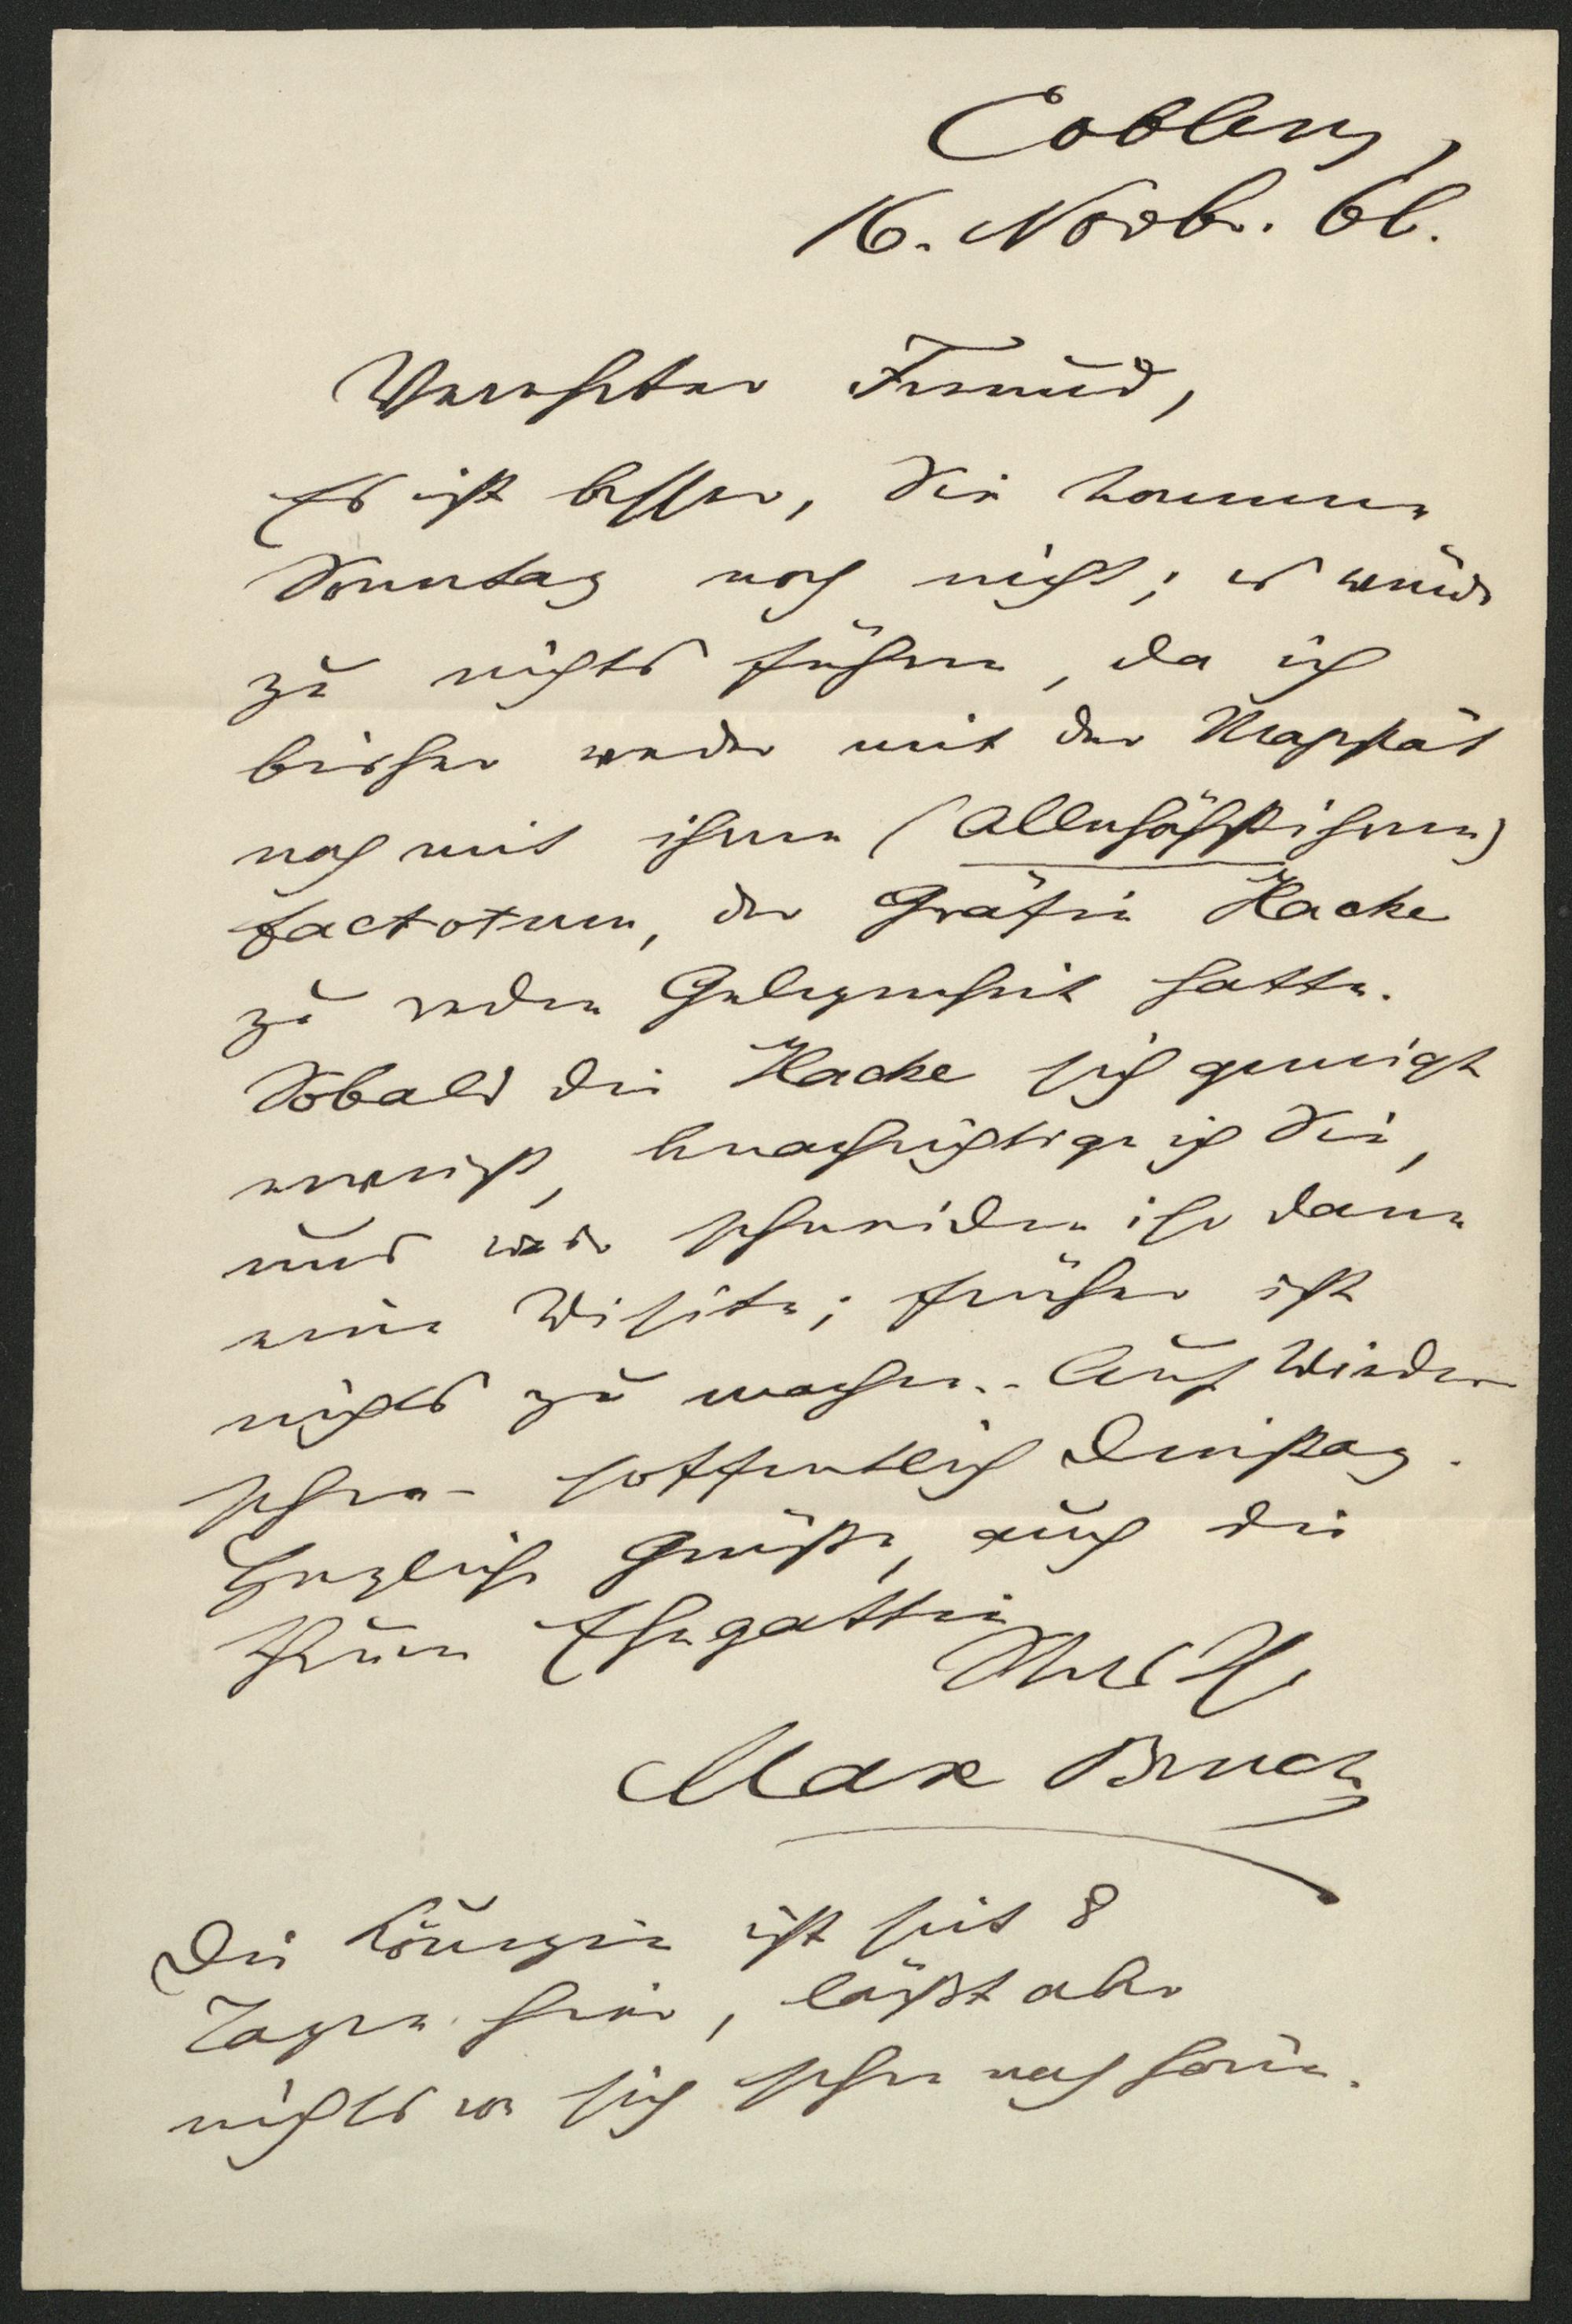 Coblenz,
16. Novbr. 66.
Verehrter Freund,
Es ist besser, Sie kommen
Sonntag noch nicht; es würde
zu nichts führen, da ich
bisher weder mit der Majestät
noch mit ihrem (allerhöchstihrem)
factotum, der Gräfin Hacke
zu reden Gelegenheit hatte.
Sobald die Hacke sich geneigt
erweist, benachrichtige ich Sie,
und wir schneiden ihr dann
eine Visite; früher ist
nichts zu machen. - Auf Wieder
sehen - hoffentlich Dinstag.
Herzliche Grüße, auch die
Ehegattin
Max Bruch
Die Königin ist seit 8
Tagen hier, läßt aber
nichts von sich sehen noch hören.